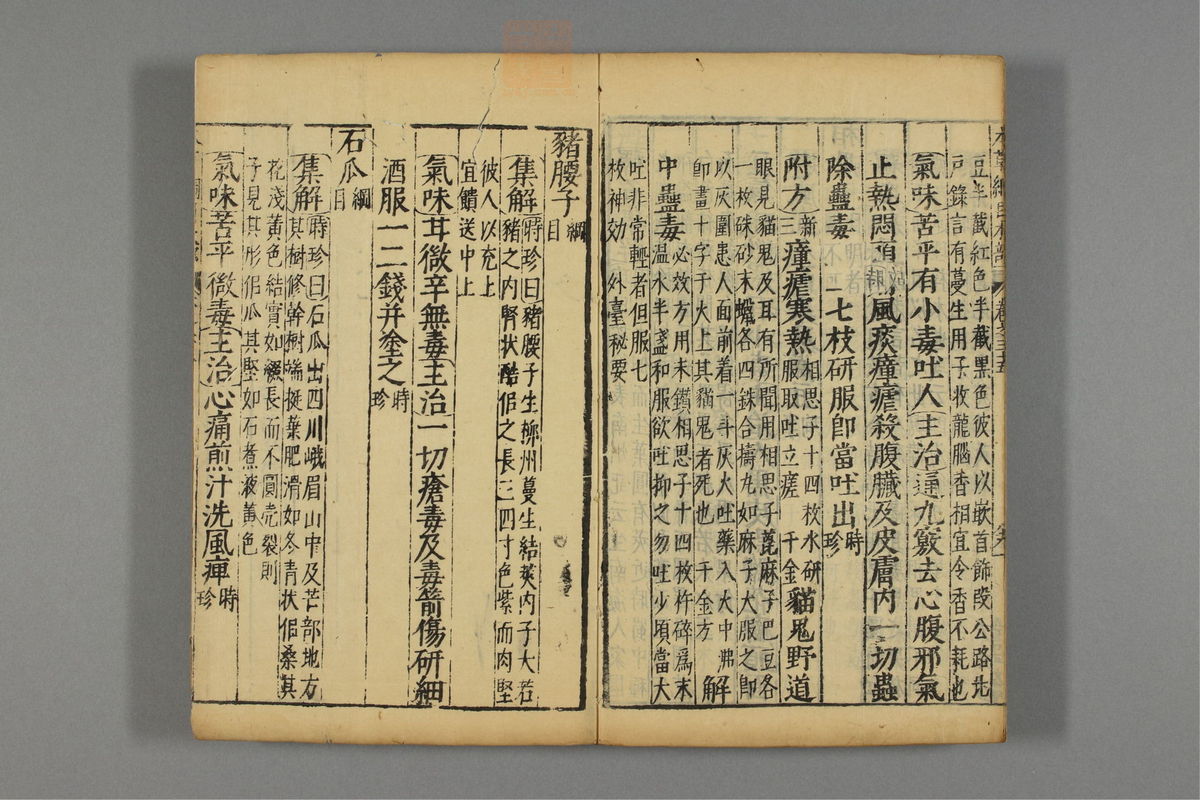 豆半截紅色半截黑色彼人以嵌首飾段公路北
戸錄言有蔓生用子收龍腦香相宜令香不耗也
氣味苦平有小毒吐人主治通九竅去心腹邪氣
止熱悶頭痛風痰瘴瘧殺腹臟及皮膚內一切蟲
除蠱毒
二七枝研服卽當吐出時珍
附方新三瘴瘧寒熱相思子十四枚水研
服取吐立瘥千金貓鬼野道
眼見貓鬼及耳有所聞用相思子蓖麻子巴豆各
一枚硃砂末蠟各四銖合擣丸如麻子大服之卽
以灰圍患人面前着一斗灰火吐藥入火中沸
卽畫十字于火上其貓鬼者死也千金方解
中蠱毒必效方用未鑽相思子十四枚杵碎爲末
溫水半盞和服欲吐抑之勿吐少頃當大
吐非常輕者但服七
枚神効外臺秘要
豬腰子綱目
集解時珍曰豬腰子生柳州蔓生結莢內子大若
豬之內腎狀酷佀之長三四寸色紫而肉堅
彼人以充上
宜饋送中上
氣味甘微辛無毒主治一切瘡毒及毒箭傷研細
酒服一二錢幷塗之時珍
石瓜綱目
集解時珍曰石瓜出四川峨眉山中及芒部地方
其樹修幹樹端挺葉肥滑如冬青狀佀桑其
花淺黃色結實如綴長而不圓壳裂則
子見其形佀瓜其堅如石煮液黃色
氣味苦平微毒主治心痛煎汁洗風痺時珍